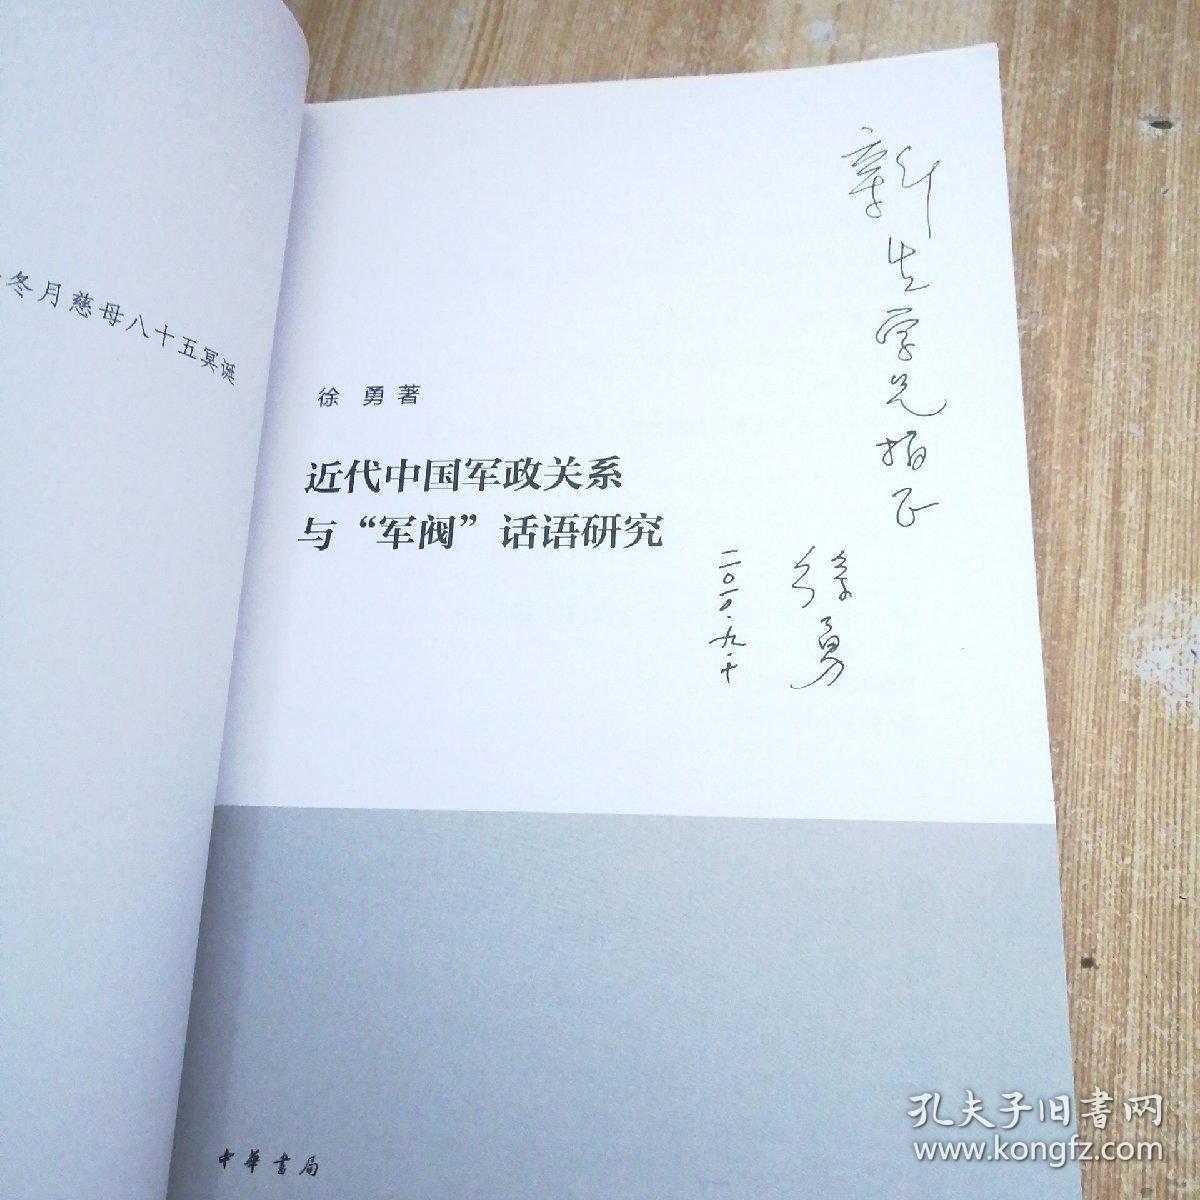 冬月慈母八十五冥诞
徐 勇 著
近代中国军政关系
与“军阀”话语研究
新生学兄指正
徐勇
九·十
中華書局
孔夫子旧書网
www.kongfz.com